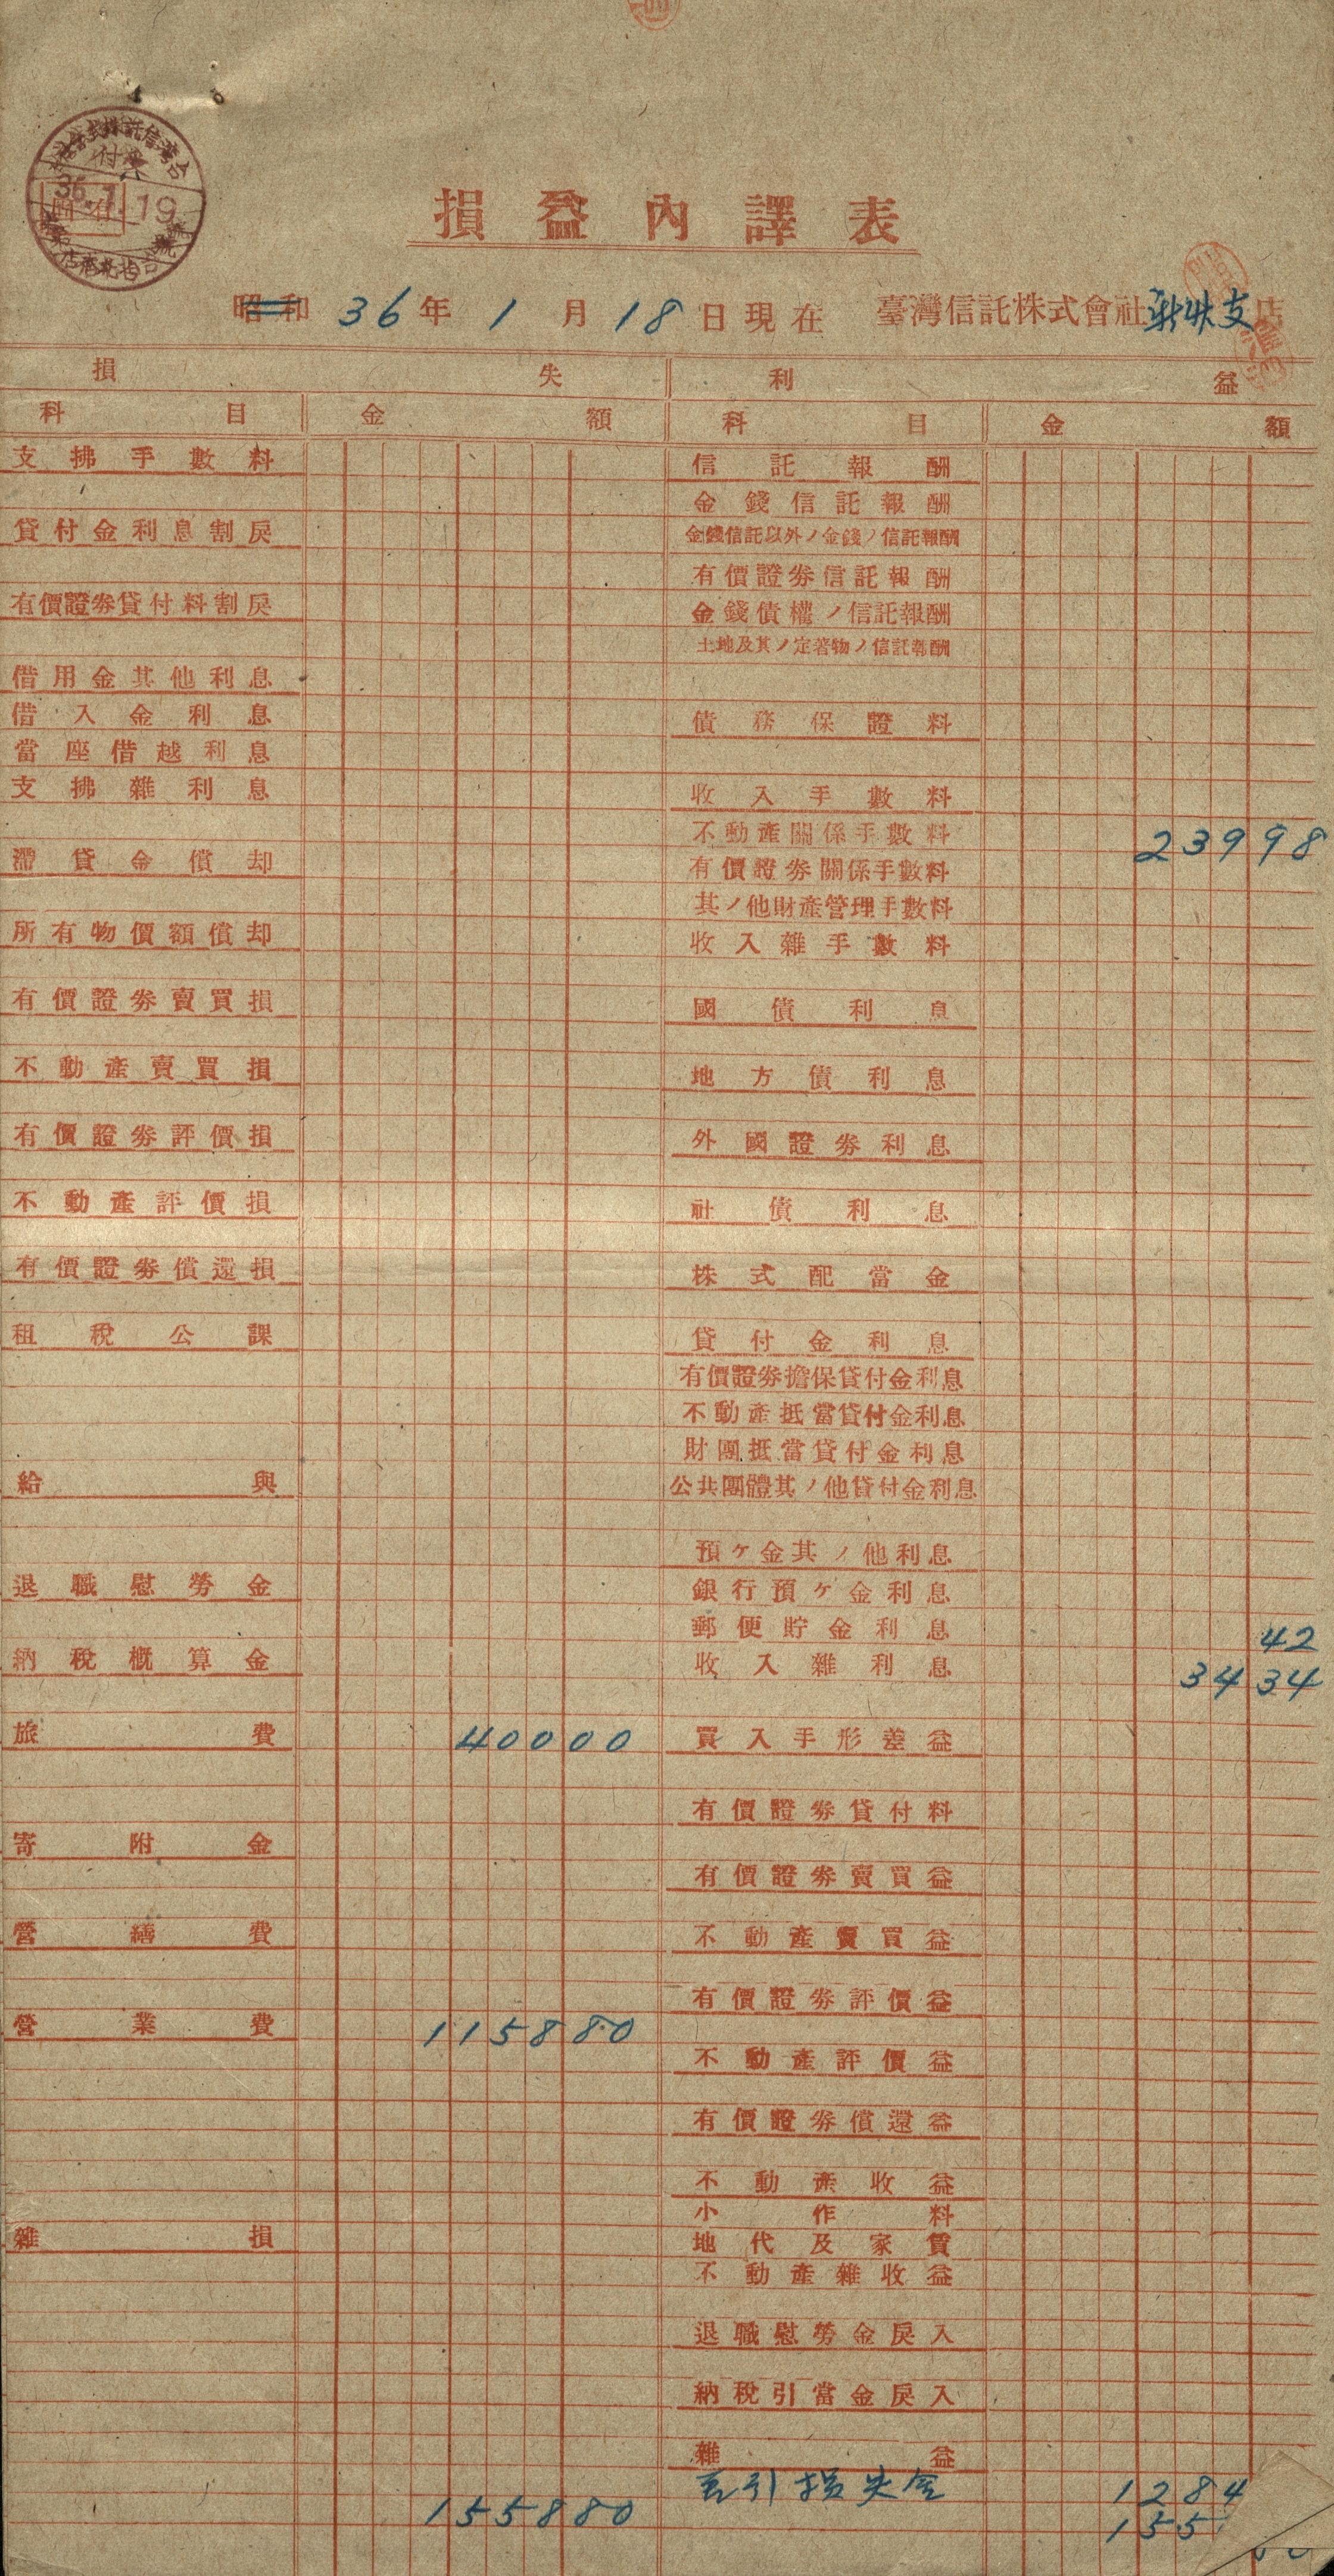 損益內譯表
昭和 36年 1月 18日現在 臺灣信託株式會社 支店
36. 1. 19
損失 利益
科目 金額 科目 金額
支拂手數料
貸付金利息割戾
有價證券貸付料割戾
借用金其他利息
借入金利息
當座借越利息
支拂雜利息
滯貸金償却
所有物價額償却
有價證券賣買損
不動產賣買損
有價證券評價損
不動產評價損
有價證券償還損
租稅公課
給與
退職慰勞金
納稅概算金
旅費 40000
寄附金
營繕費
營業費 115880
雜損
155880
信託報酬
金錢信託報酬
金錢信託以外ノ金錢ノ信託報酬
有價證券信託報酬
金錢債權ノ信託報酬
土地及其ノ定著物ノ信託報酬
債務保證料
收入手數料
不動產關係手數料 23998
有價證券關係手數料
其ノ他財產管理手數料
收入雜手數料
國債利息
地方債利息
外國證券利息
社債利息
株式配當金
貸付金利息
有價證券擔保貸付金利息
不動產抵當貸付金利息
財團抵當貸付金利息
公共團體其ノ他貸付金利息
預ケ金其ノ他利息
銀行預ケ金利息
郵便貯金利息 42
收入雜利息 3434
買入手形差益
有價證券貸付料
有價證券賣買益
不動產賣買益
有價證券評價益
不動產評價益
有價證券償還益
不動產收益
小作料
地代及家賃
不動產雜收益
退職慰勞金戾入
納稅引當金戾入
雜益
差引損失金 1284
155